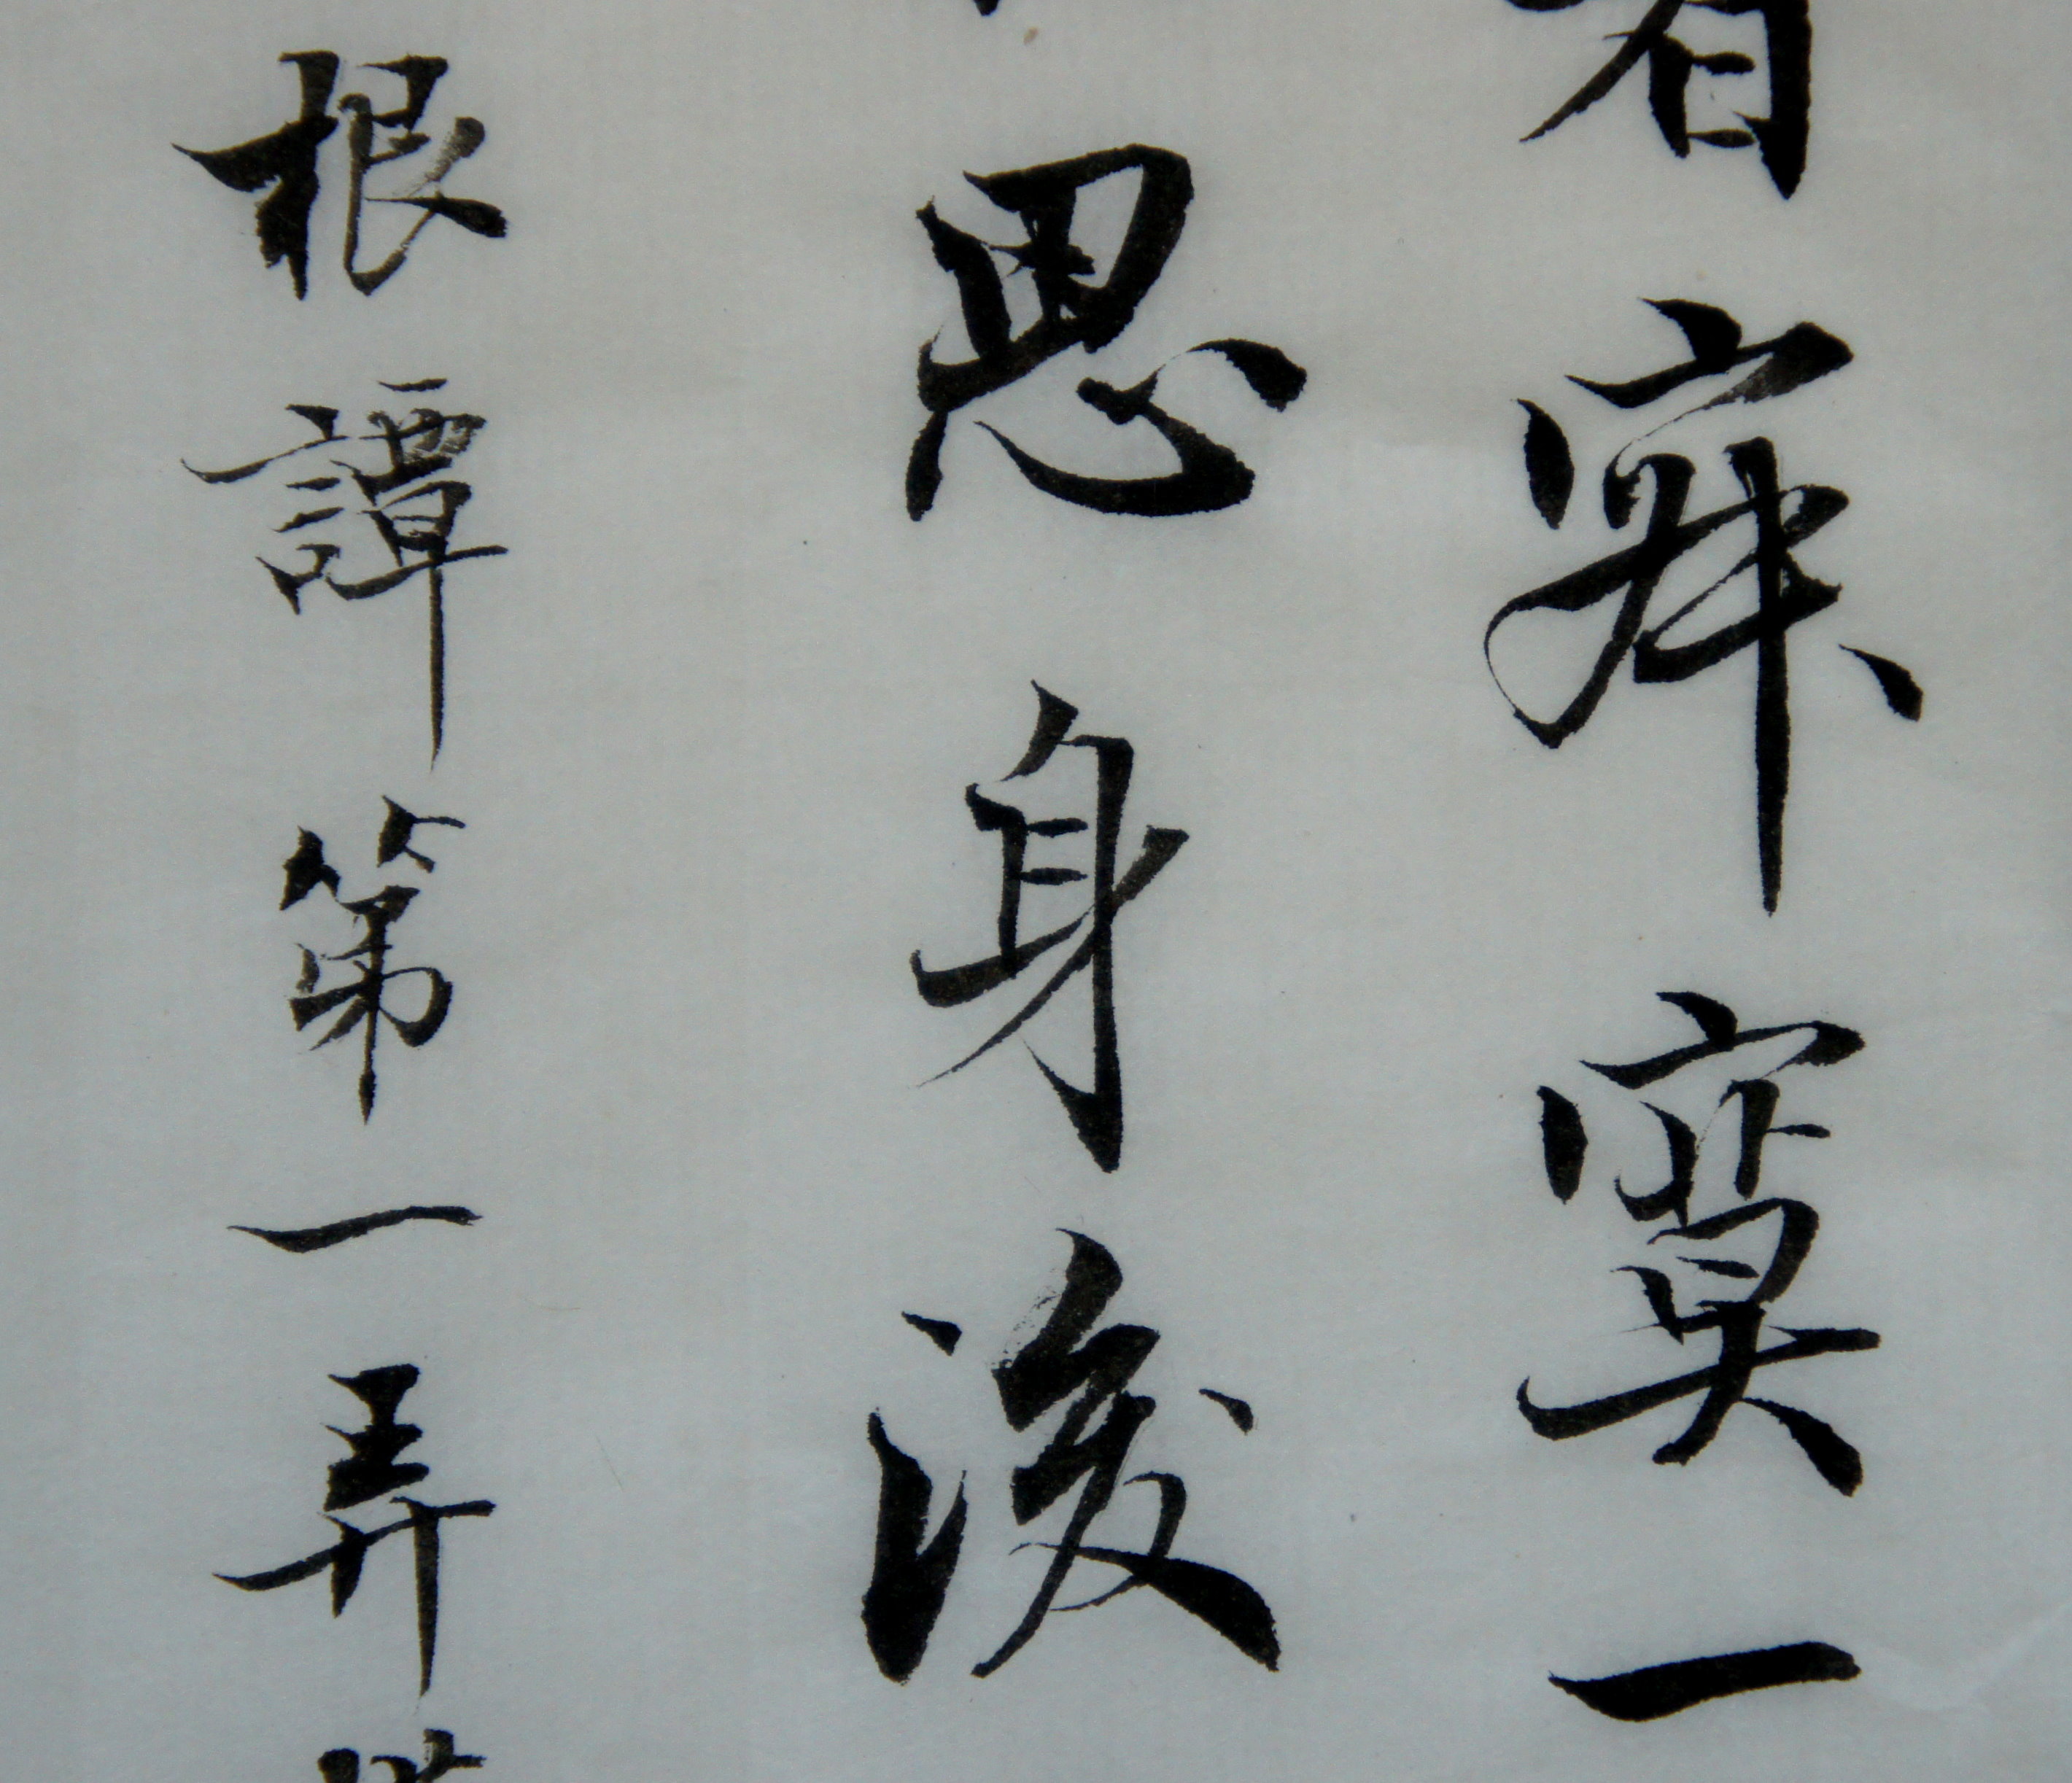 者寂寞一
思身後
根譚第一弄